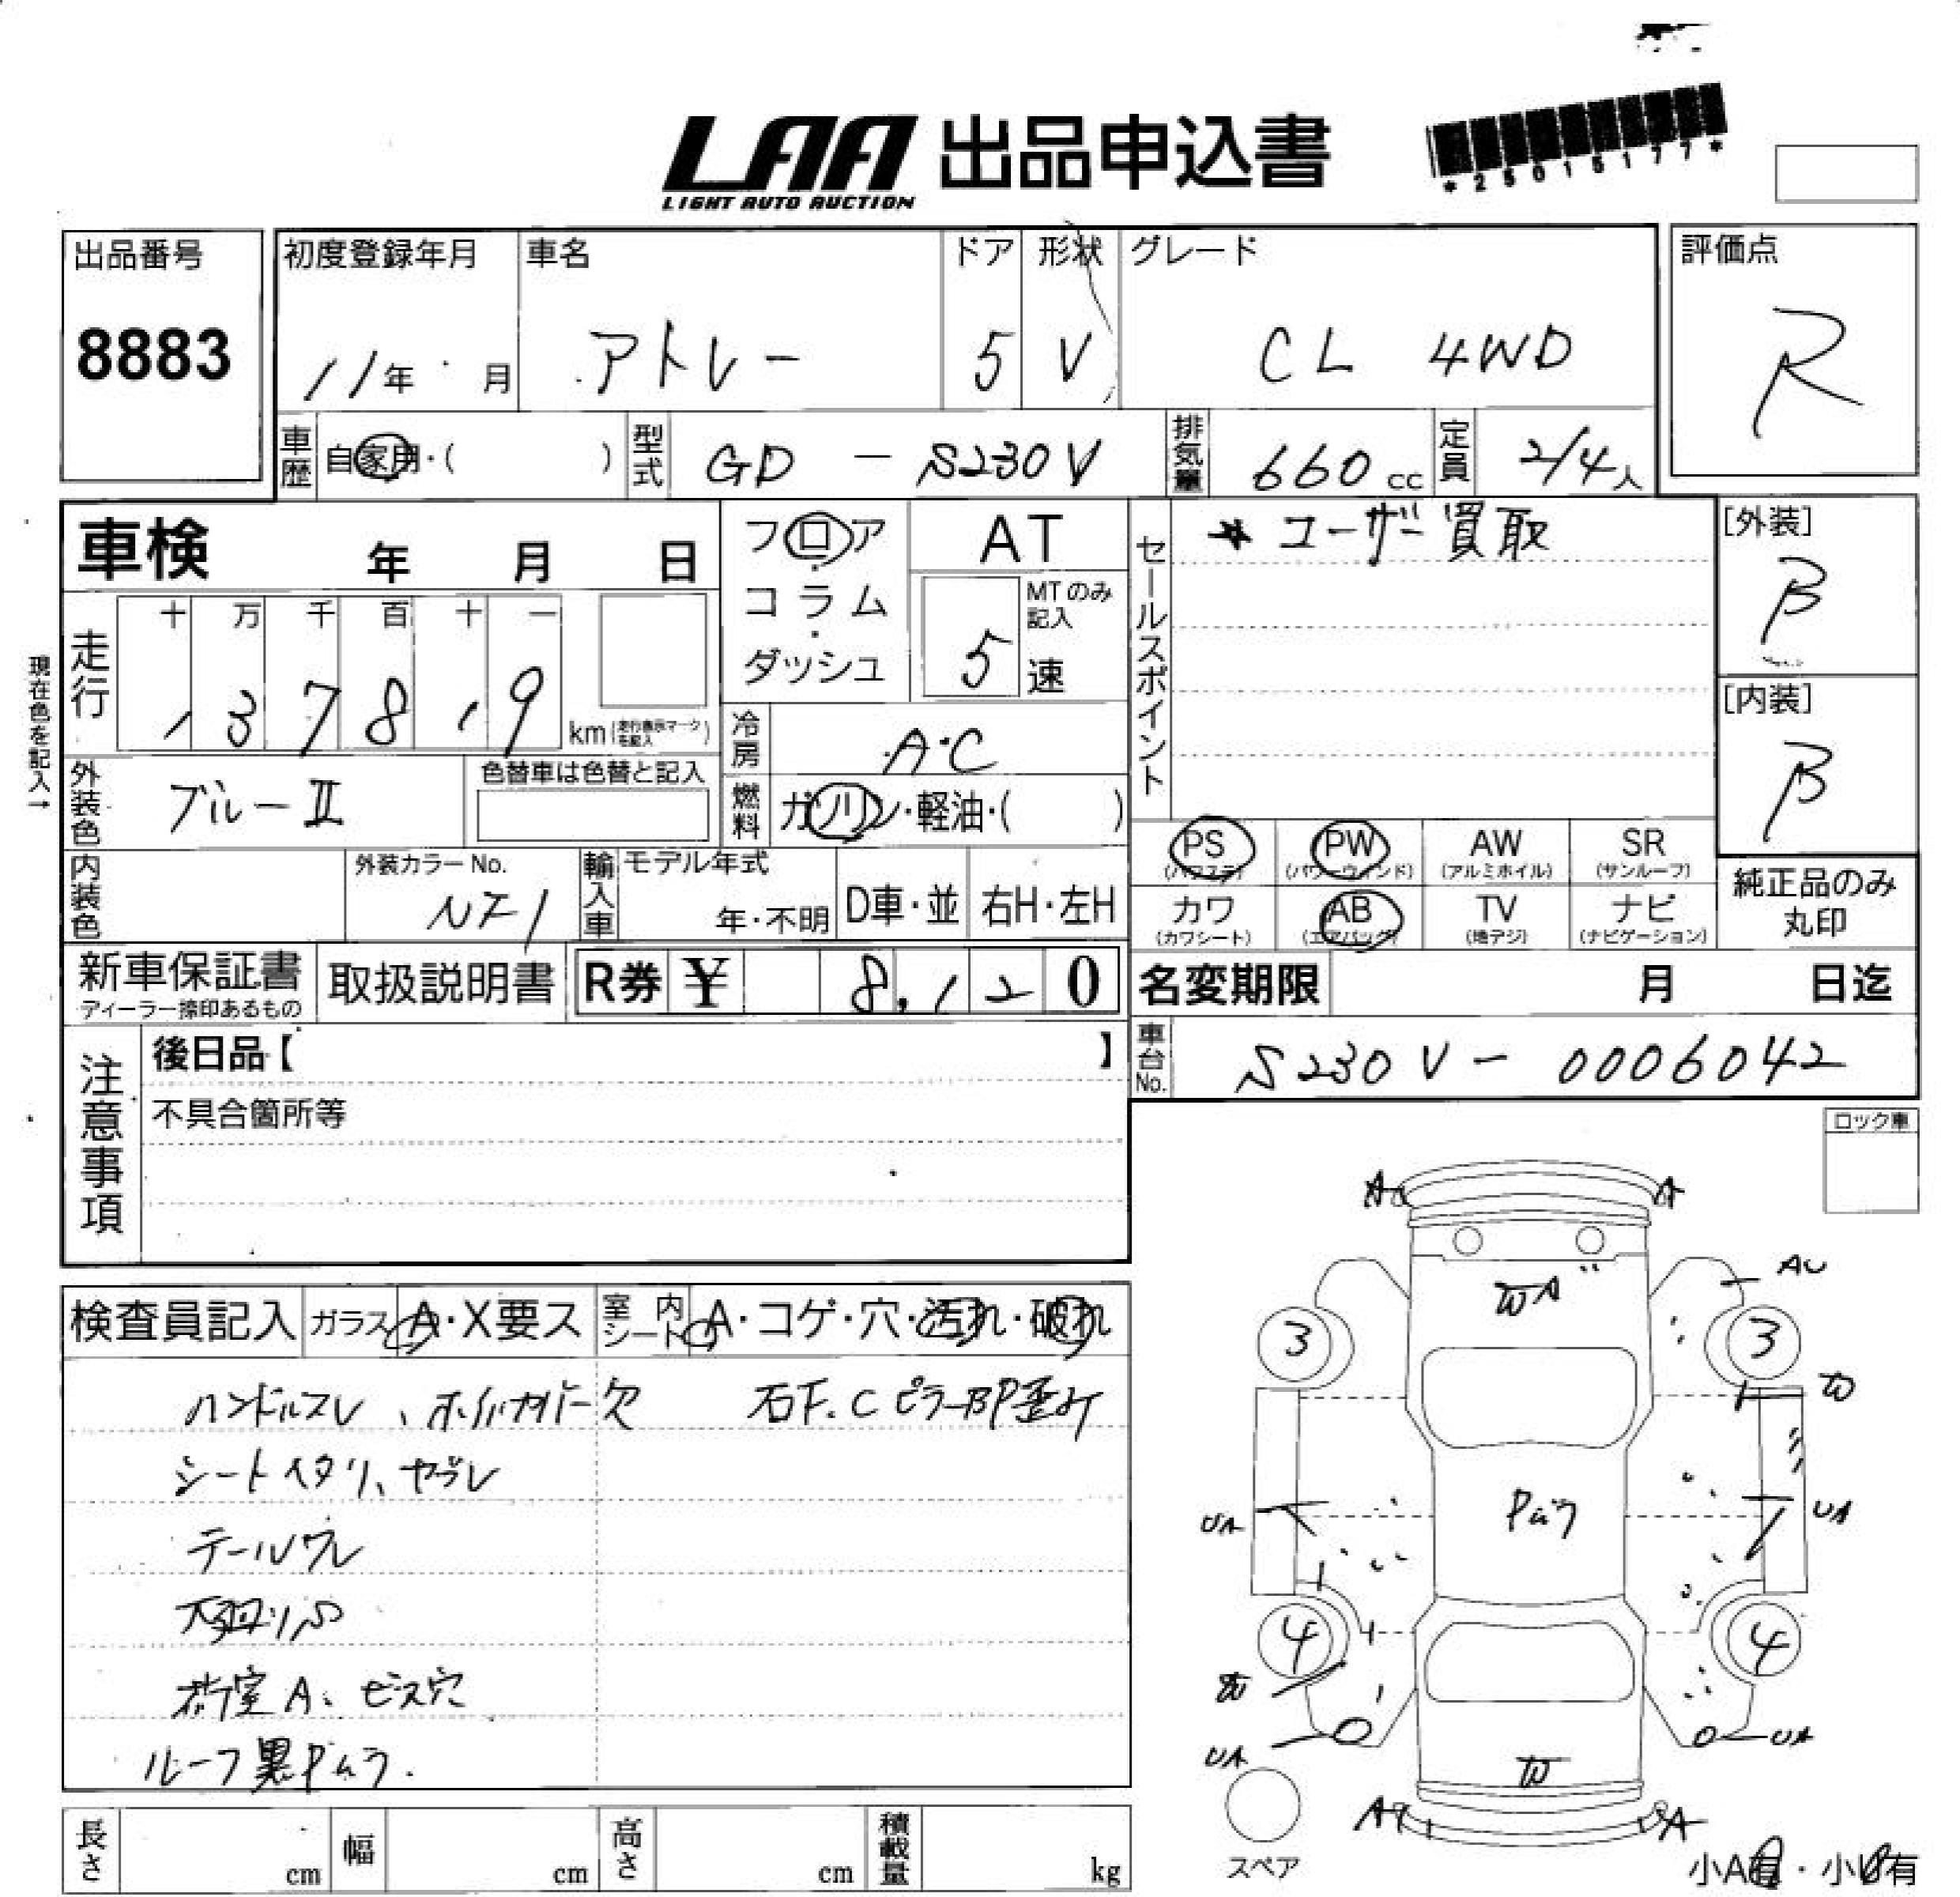 LAA 出品申込書
LIGHT AUTO AUCTION
*25015177*
出品番号
8883
初度登録年月
11年 月
車名
アトレー
ドア
5
形状
V
グレード
CL 4WD
評価点
R
車歴
自家用・( )
型式
GD - S230V
排気量
660 cc
定員
2/4人
車検 年 月 日
フロア
・
コラム
・
ダッシュ
AT
MTのみ
記入
5 速
セールスポイント
★ユーザー買取
[外装]
B
[内装]
B
現在色を記入→
走行
十 万 千 百 十 一
1 3 7 8 1 9
km(走行表示マークを記入)
冷房
A・C
外装色
ブルーII
色替車は色替と記入
燃料
ガソリン・軽油・( )
内装色
外装カラーNo.
NF1
輸入車
モデル年式
年・不明
D車・並
右H・左H
PS
(パワステ)
PW
(パワーウィンド)
AW
(アルミホイル)
SR
(サンルーフ)
カワ
(カワシート)
AB
(エアバッグ)
TV
(地デジ)
ナビ
(ナビゲーション)
純正品のみ
丸印
新車保証書
ディーラー捺印あるもの
取扱説明書
R券 ¥ 8,120
名変期限 月 日迄
車台No.
S230V-0006042
注意事項
後日品【 】
不具合箇所等
ロック車
検査員記入
ガラス A・X要ス
室内シート A・コゲ・穴・汚れ・破れ
ハンドルスレ、ホイルカバー欠
右下.Cピラー部歪み
シートヘタリ、ヤブレ
テールワレ
下廻りS
荷室A、ビス穴
ルーフ黒Pムラ.
A A
WA"
AU
3 3
W
Pムラ
UA UA
4 4
W
UA UA
W
A A
スペア
小A有・小U有
長さ cm
幅 cm
高さ cm
積載量 kg